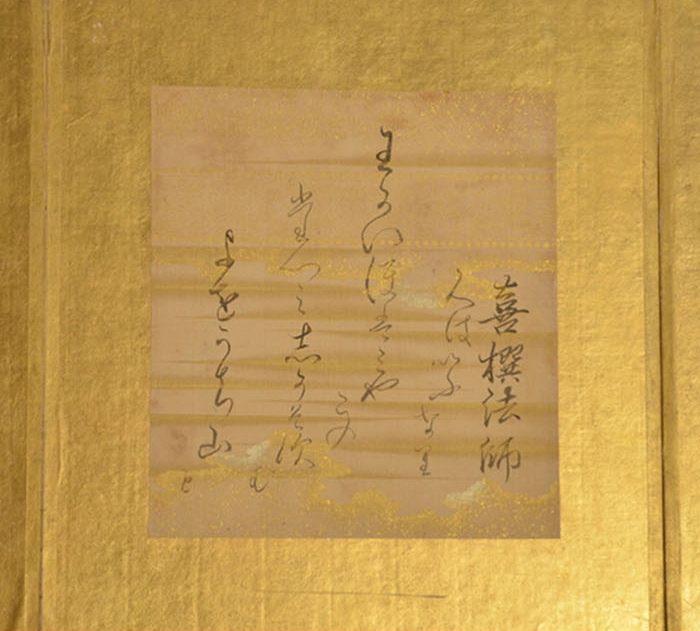 喜撰法師
わかいほはみや
この
たつみしかそす
む
よをうち山
と
人はいふなり